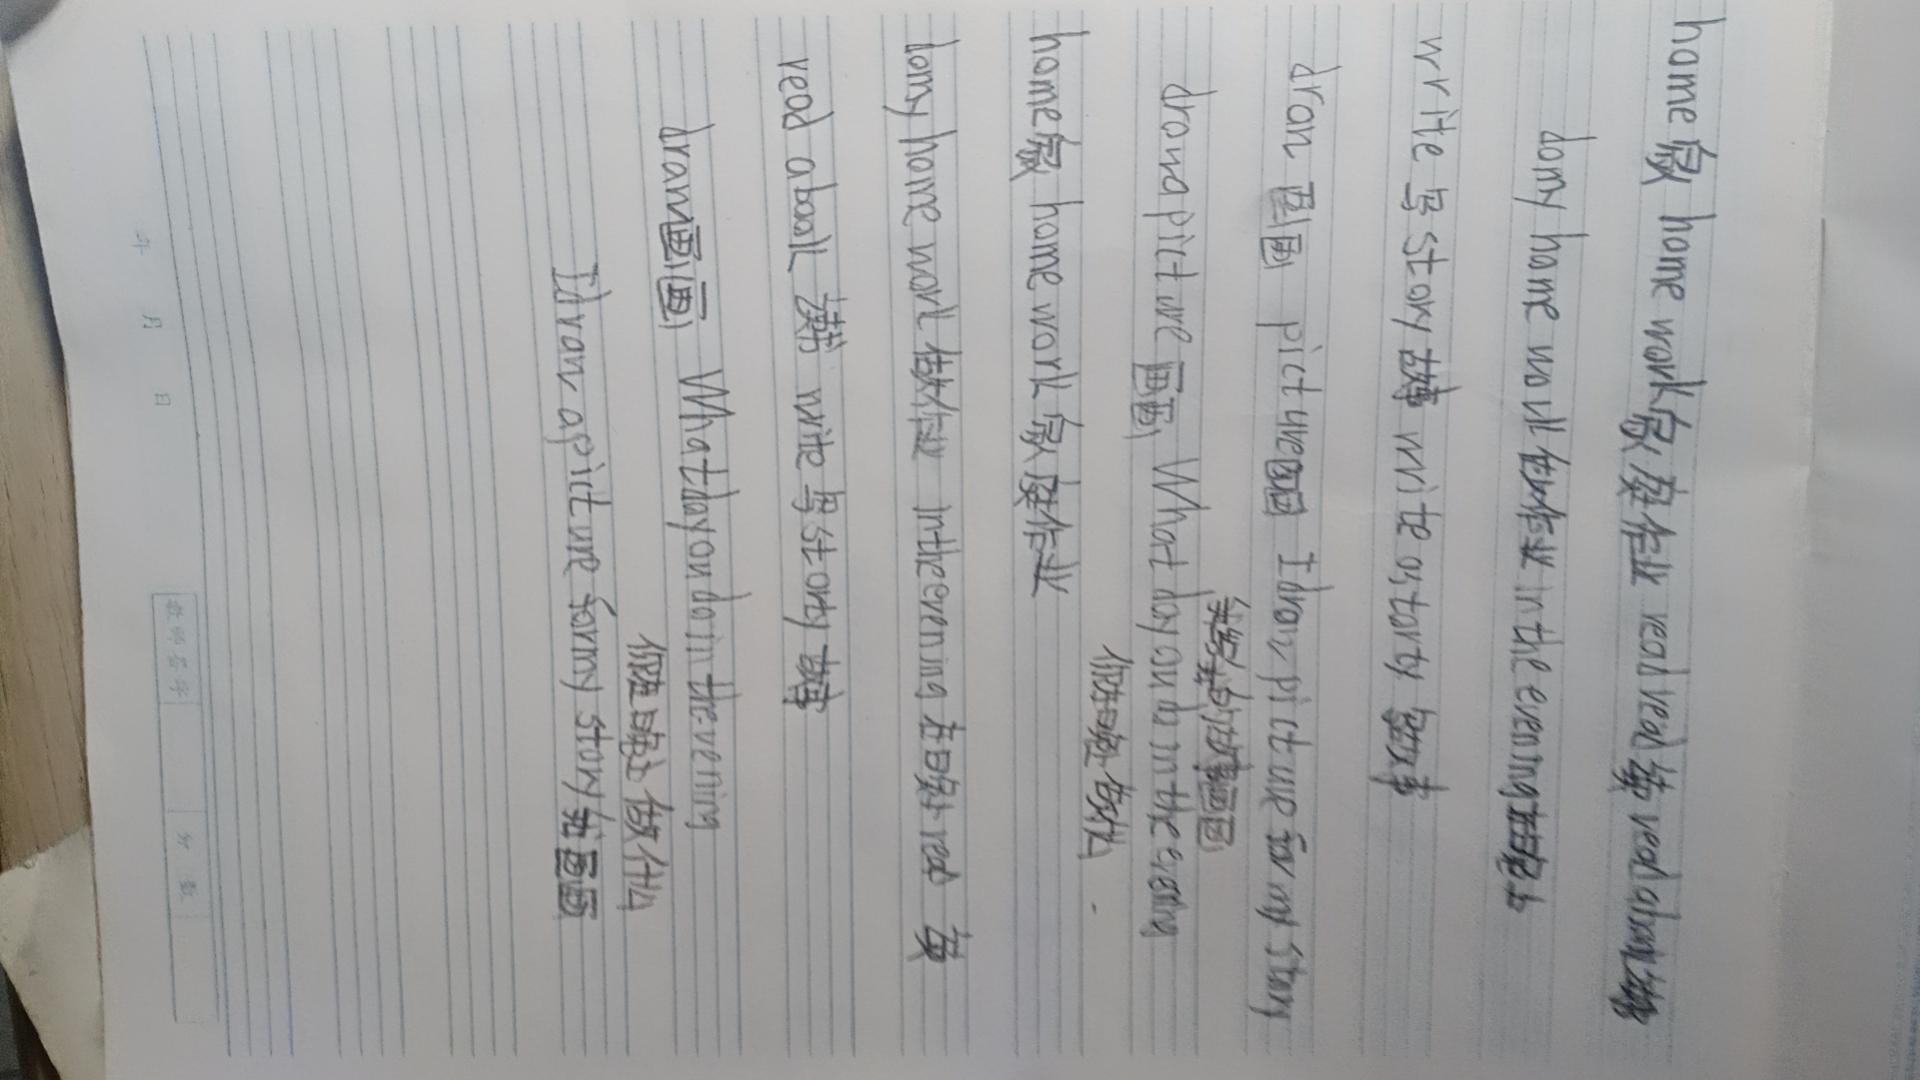 home 家 home work 家庭作业 read read 读 read aboal 读书
domy home work 做作业 in the evening 在晚上
write 写 story 故事 write astorty 故事
dran 画画 picture 画 I dran picture formy Story
dranapicture 画画 What doyou do in the evening
你在晚 做什么
home 家 home work 家庭作业
domy home work 做作业 inthe evening 在晚 read 读
read aboal 读书 write 写 storty 故事
dran 画画 What doyou do in thevening
你在晚 做什么
Idran apicture formy story
年 月 日
教师签字
分数